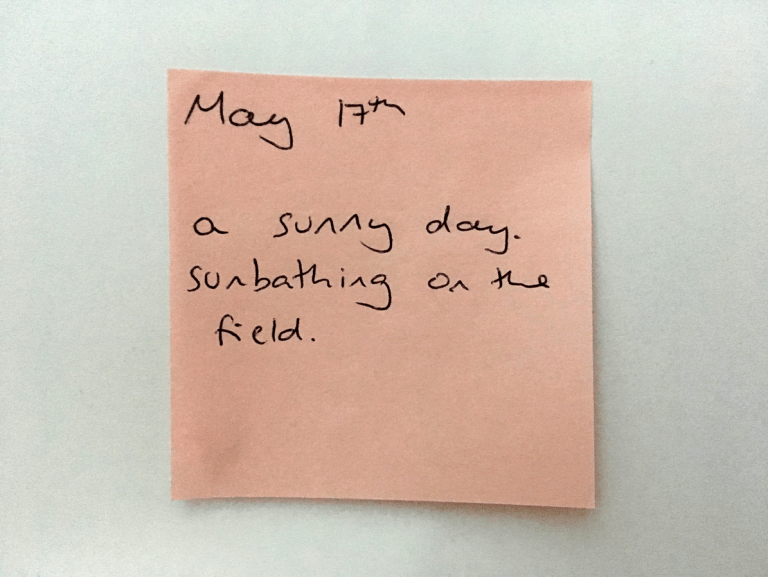 May 17th
a sunny day.
sunbathing on the
field.